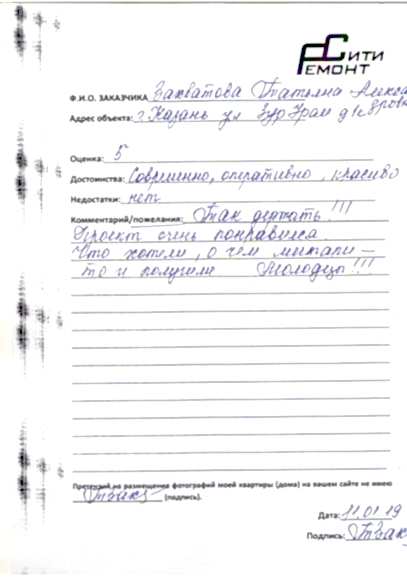 СИТИ
РЕМОНТ
Ф.И.О. ЗАКАЗЧИКА Захватова Татьяна
Адрес объекта: г. Казань ул
Оценка: 5
Достоинства: Современно, оперативно, красиво
Недостатки: нет
Комментарий/пожелания: Так держать!!!
Проект очень понравился.
Что хотели, о чем мечтали –
то и получили Молодцы!!!
Претензий на размещение фотографий моей квартиры (дома) на вашем сайте не имею
(подпись).
Дата: 11.01.19
Подпись: